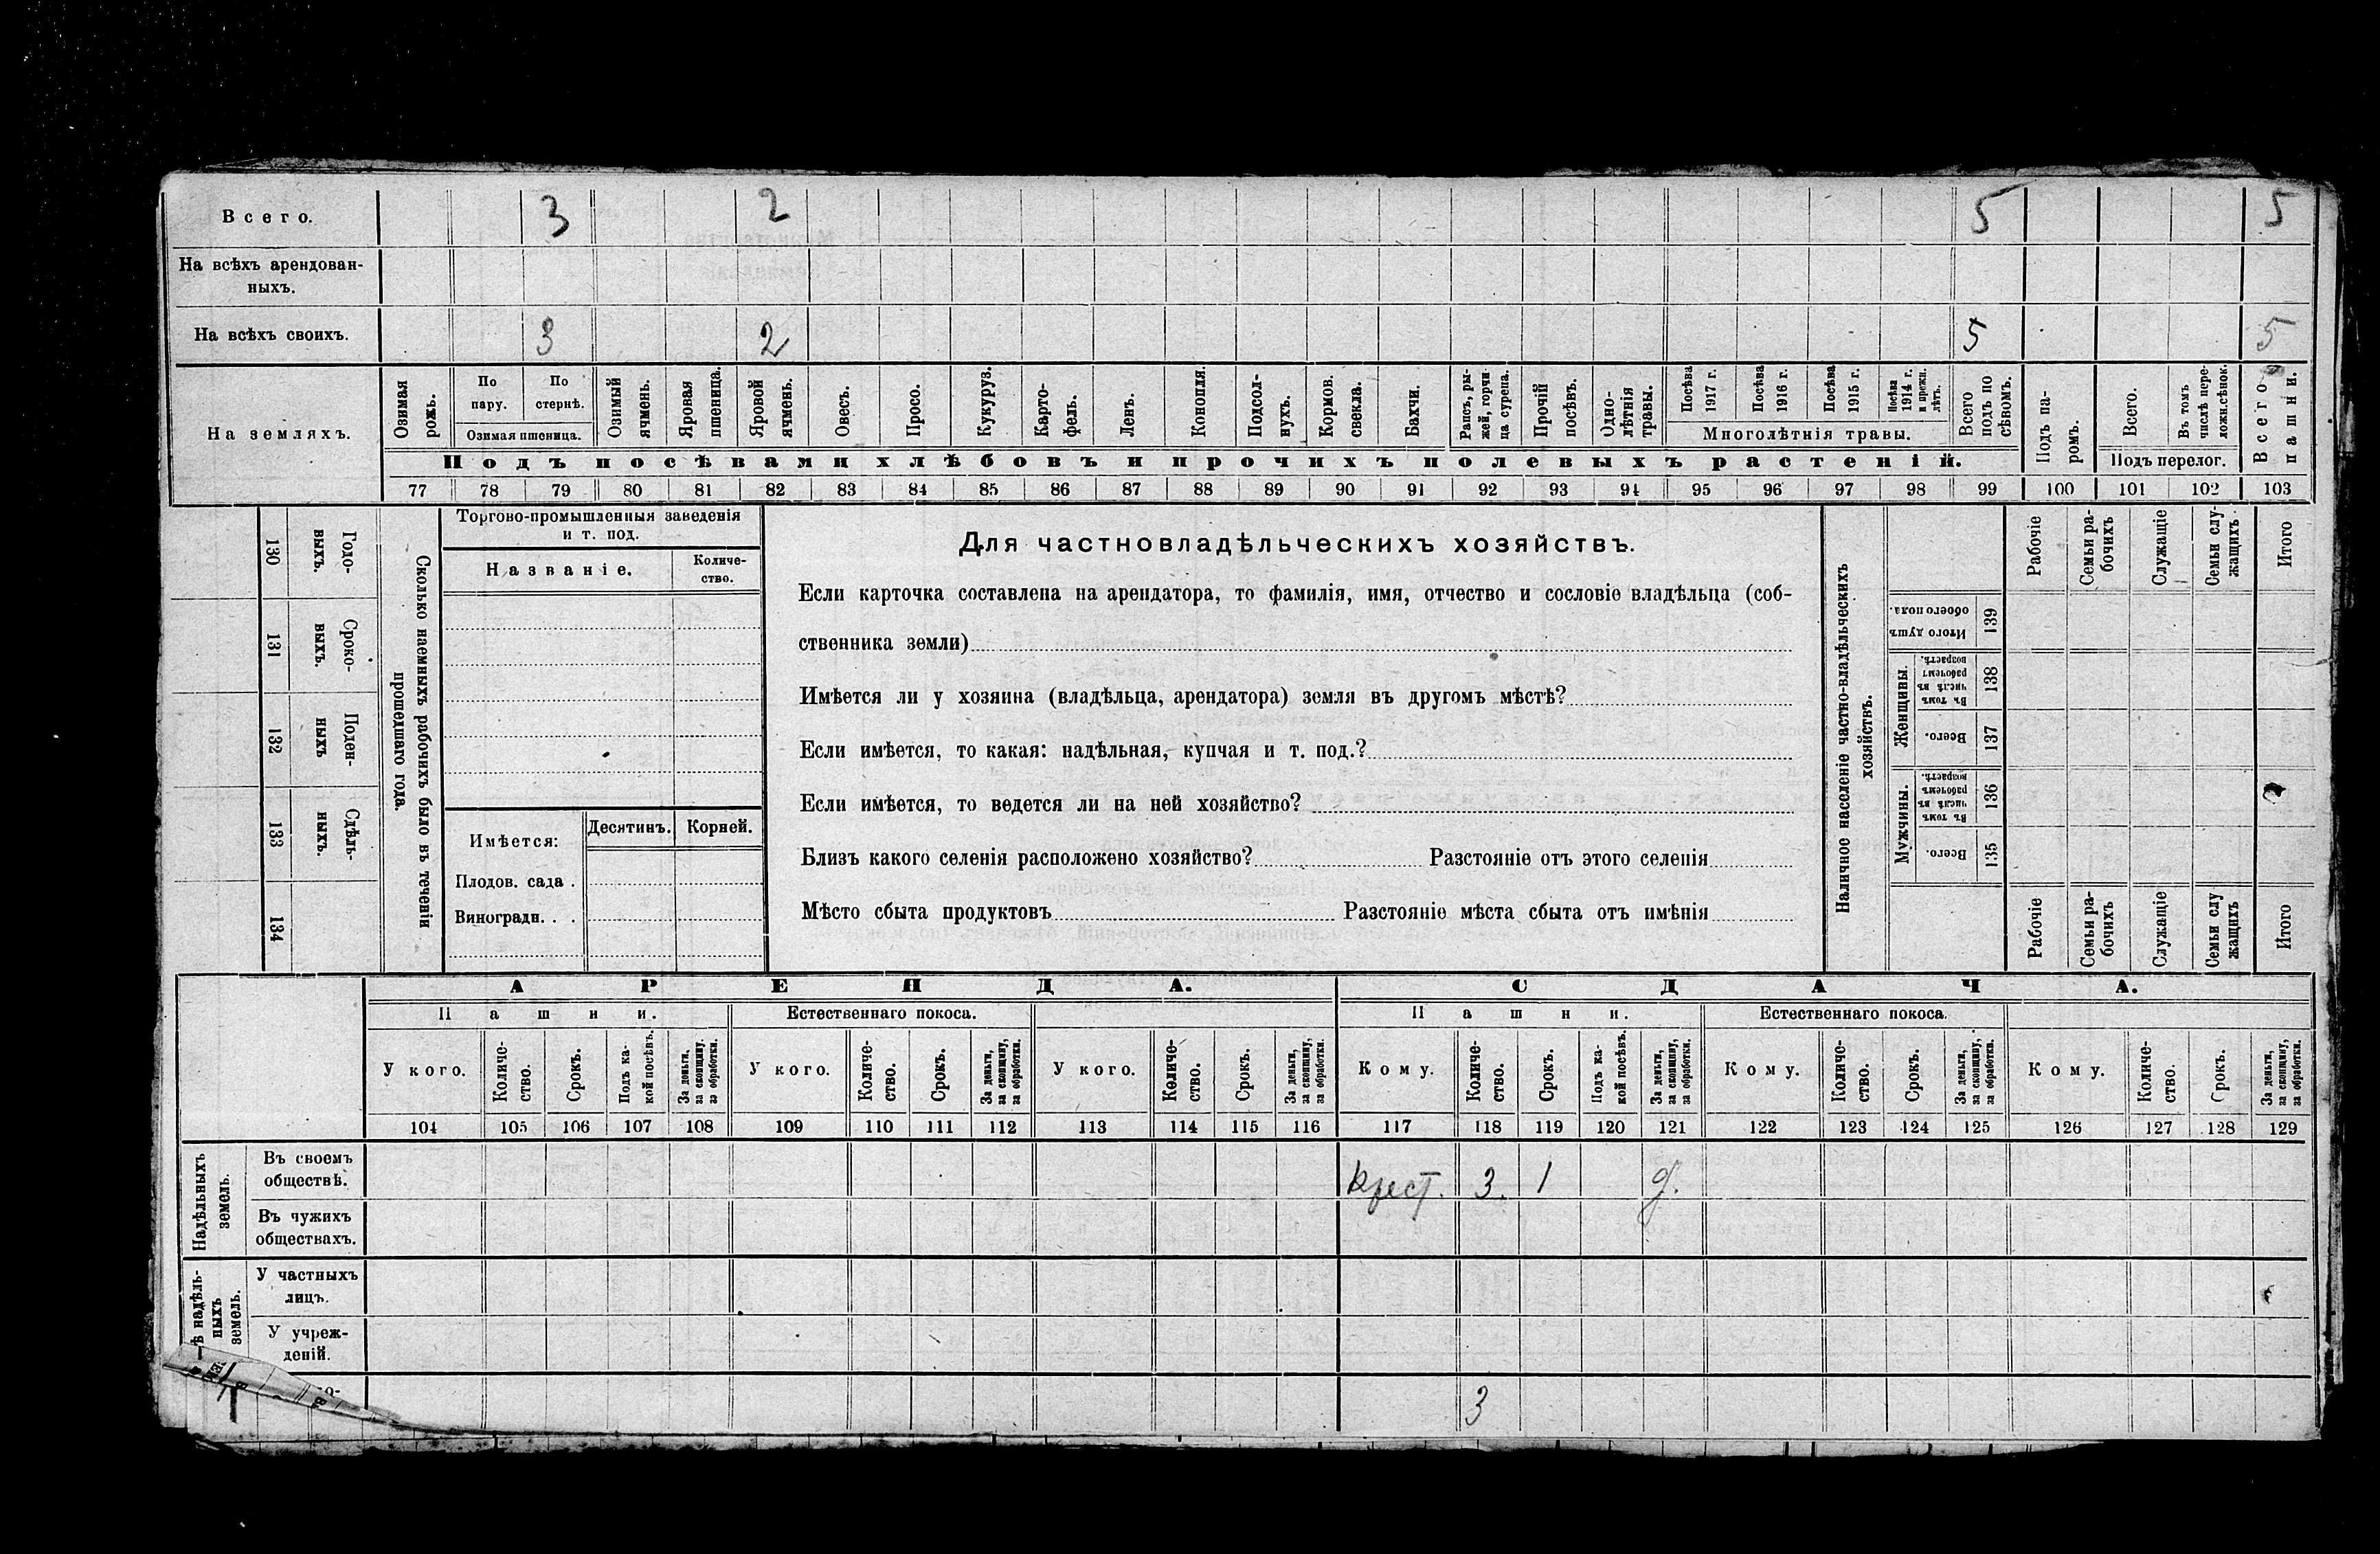 Всего. 3 2 5 5
На всѣхъ арендован-
ныхъ.
На всѣхъ своихъ. 3 2 5 5
На земляхъ.
Озимая рожь.
По пару.
По стернѣ.
Озимая пшеница.
Озимый ячмень.
Яровая пшеница.
Яровой ячмень.
Овесъ.
Просо.
Кукуруз.
Карто-
фель.
Ленъ.
Конопля.
Подсол-
нухъ.
Кормов.
свекла.
Бахчи.
Рапсъ, ры-
жей, горчи-
ца сурепа.
Прочій
посѣвъ.
Одно-
лѣтнія
травы.
Посѣва
1917 г.
Посѣва
1916 г.
Посѣва
1915 г.
Посѣва
1914 г.
и прежн.
лѣтъ.
Многолѣтнія травы.
Всего
подъ по
сѣвомъ.
Подъ па-
ромъ.
Всего.
Въ томъ
числѣ пере-
ложн.сѣнок.
Подъ перелог.
Всего
пашни.
Подъ посѣвами хлѣбовъ и прочихъ полевыхъ растеній.
77 78 79 80 81 82 83 84 85 86 87 88 89 90 91 92 93 94 95 96 97 98 99 100 101 102 103
Сколько наемныхъ рабочихъ было въ теченіи
прошедшаго года.
Годо-
выхъ.
130
Сроко-
выхъ.
131
Поден-
ныхъ
132
Сдѣль-
ныхъ.
133
134
Торгово-промышленныя заведенія
и т. под.
Названіе.
Количе-
ство.
Имѣется:
Десятинъ. Корней.
Плодов. сада .
Виноградн. . .
Для частновладѣльческихъ хозяйствъ.
Если карточка составлена на арендатора, то фамилія, имя, отчество и сословіе владѣльца (соб-
ственника земли)
Имѣется ли у хозяина (владѣльца, арендатора) земля въ другомъ мѣстѣ?
Если имѣется, то какая: надѣльная, купчая и т. под.?
Если имѣется, то ведется ли на ней хозяйство?
Близъ какого селенія расположено хозяйство? Разстояніе отъ этого селенія
Мѣсто сбыта продуктовъ Разстояніе мѣста сбыта отъ имѣнія
Наличное населеніе частно-владѣльческихъ
хозяйствъ.
Рабочіе
Семьи ра-
бочихъ
Служащіе
Семьи слу-
жащихъ
Итого
Итого душъ
обоего пола.
139
Женщины.
Въ томъ
числѣ въ
рабочемъ
возрастѣ.
138
Всего.
137
Мужчины.
Въ томъ
числѣ въ
рабочемъ
возрастѣ.
136
Всего.
135
Рабочіе
Семьи ра-
бочихъ
Служащіе
Семьи слу
жащихъ
Итого
АРЕНДА. СДАЧА.
Пашни. Естественнаго покоса. Пашни. Естественнаго покоса.
У кого.
Количе-
ство.
Срокъ.
Подъ ка-
кой посѣвъ.
За деньги,
за скопщину,
за обработки.
У кого.
Количе-
ство.
Срокъ.
За деньги,
за скопщину,
за обработки.
У кого.
Количе-
ство.
Срокъ.
За деньги,
за скопщину,
за обработки.
Кому.
Количе-
ство.
Срокъ.
Подъ ка-
кой посѣвъ.
За деньги,
за скопщину,
за обработки.
Кому.
Количе-
ство.
Срокъ.
За деньги,
за скопщину,
за обработки.
Кому.
Количе-
ство.
Срокъ.
За деньги,
за скопщину,
за обработки.
104 105 106 107 108 109 110 111 112 113 114 115 116 117 118 119 120 121 122 123 124 125 126 127 128 129
Надѣльныхъ
земель.
Въ своемъ
обществѣ. Крест. 3. 1 д.
Въ чужихъ
обществахъ.
надѣль-
ныхъ
земель.
У частныхъ
лицъ.
У учреж-
деній.
3